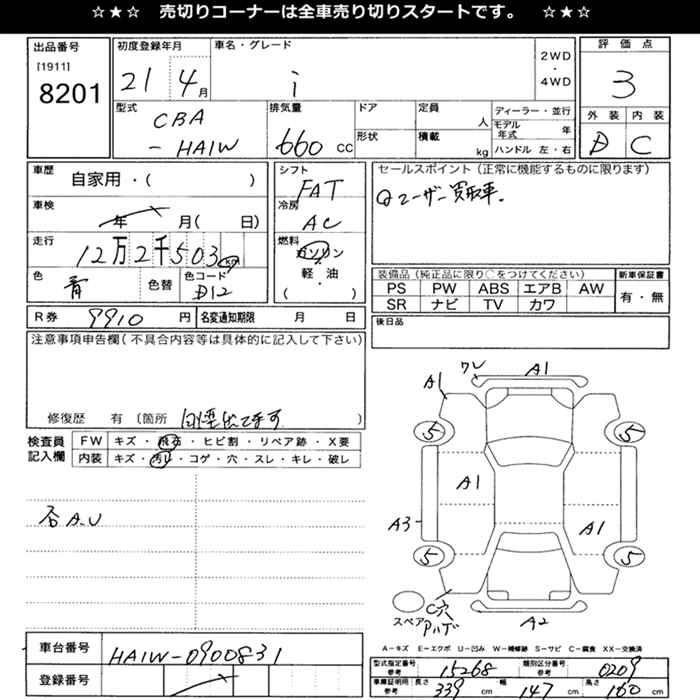 ☆★☆ 売切りコーナーは全車売り切りスタートです。 ☆★☆
出品番号
[1911]
8201
初度登録年月
21 4月
車名・グレード
i
2WD
・
4WD
評価点
3
外装 内装
D C
型式
CBA
-HA1W
排気量
660 cc
ドア
形状
定員
人
積載
kg
ディーラー・並行
モデル年式 年
ハンドル 左・右
車歴
自家用・( )
車検
年 月( 日)
走行
12万2千503 km
色
青
色替
色コード
D12
シフト
FAT
冷房
AC
燃料
ガソリン
軽・油
( )
セールスポイント(正常に機能するものに限ります)
ユーザー買取車.
装備品(純正品に限り○をつけてください)
PS PW ABS エアB AW
SR ナビ TV カワ
新車保証書
有・無
R券 9910 円
名変通知期限 月 日
後日品
注意事項申告欄(不具合内容等は具体的に記入して下さい)
修復歴 有〔箇所 )
検査員
記入欄
FW キズ・飛石・ヒビ割・リペア跡・X要
内装 キズ・汚れ・コゲ・穴・スレ・キレ・破レ
A.U
ワレ A1
A1
5 5
A1
A3 A1
5 5
スペア
C穴
A2
A-キズ E-エクボ U-凹み W-補修跡 S-サビ C-腐食 XX-交換済
車台番号 HA1W-0900831
登録番号
型式指定番号 参考 15268
類別区分番号 参考 0209
車庫証明用 参考 長さ 339 cm 幅 147 cm 高さ 160 cm